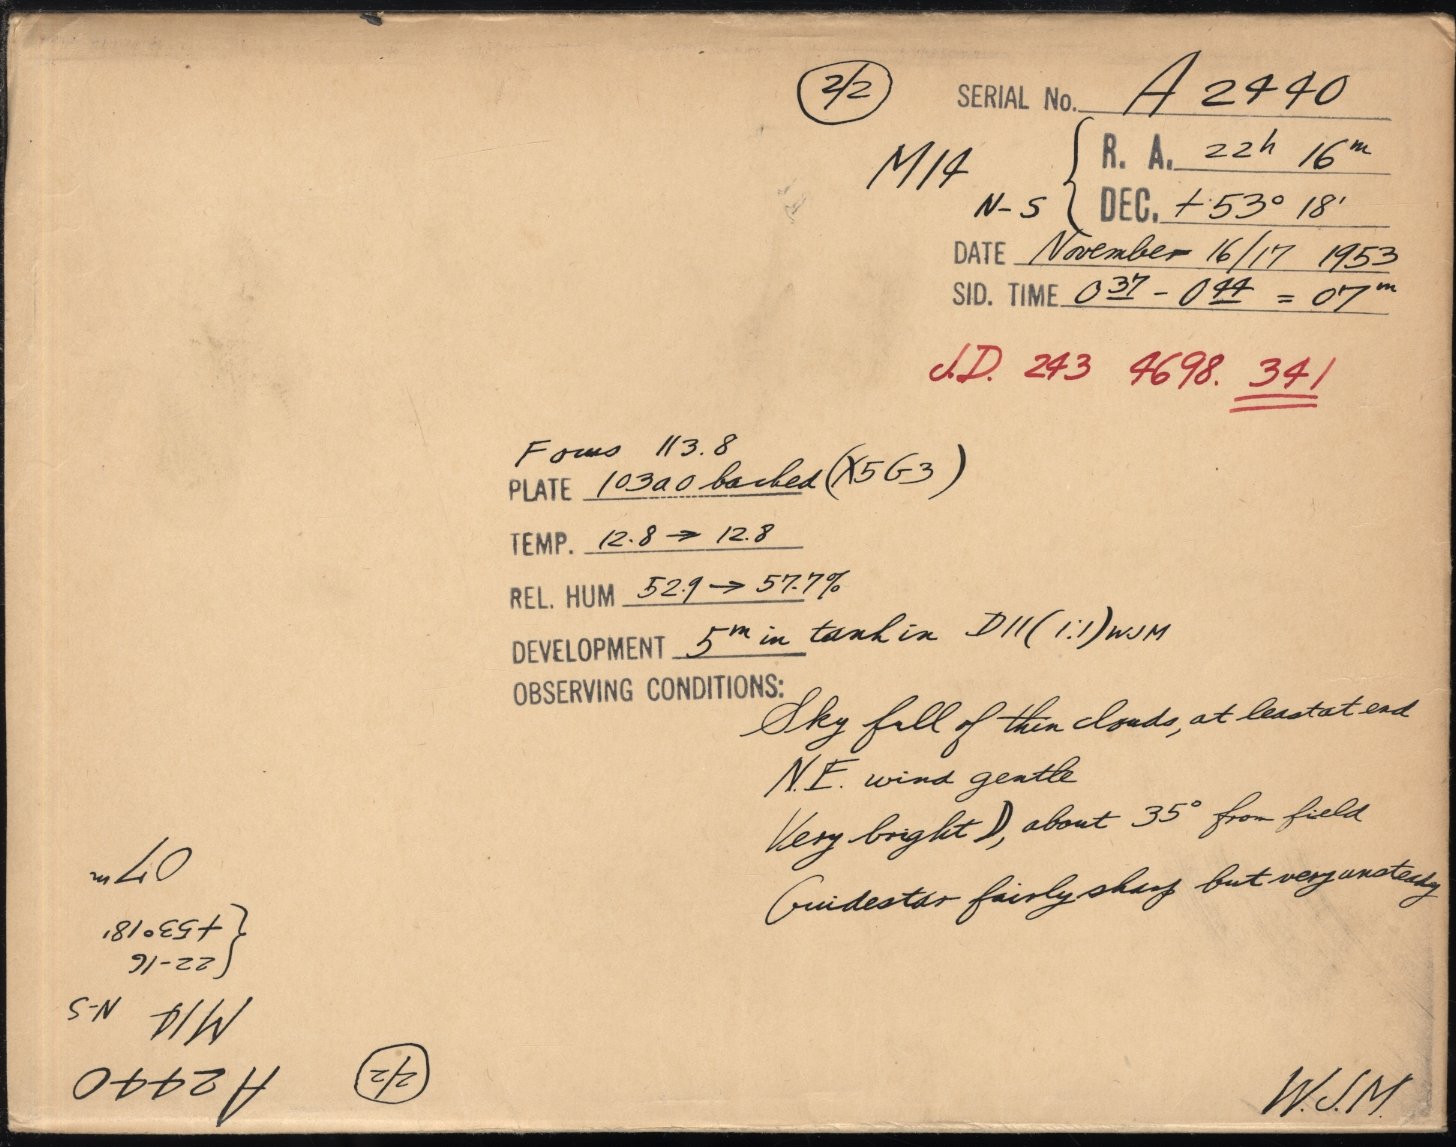 2/2
SERIAL No. A 2440
M14
N-S
R. A. 22h 16m
DEC. +53° 18'
DATE November 16/17 1953
SID. TIME 0 37 - 0 44 = 07m
J.D. 243 4698. 341
Focus 113.8
PLATE 103a0 backed (X5G3)
TEMP. 12.8 → 12.8
REL. HUM 52.9 → 57.7%
DEVELOPMENT 5m in tank in D11 (1:1) WJM
OBSERVING CONDITIONS:
Sky full of thin clouds, at least at end
N.E. wind gentle
Very bright ☽, about 35° from field
Guidestar fairly sharp but very unsteady
W.J.M.
A2440 2/2
M14 N-S
22-16
+53°18'
07m